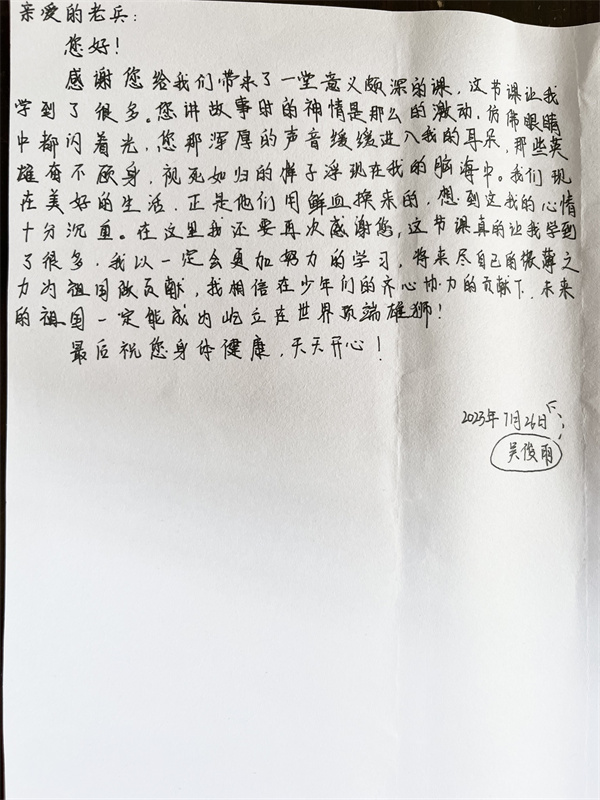 亲爱的老兵：
您好！
感谢您给我们带来了一堂意义颇深的课，这节课让我
学到了很多。您讲故事时的神情是那么的激动，仿佛眼睛
中都闪着光，您那深厚的声音缓缓进入我的耳朵，那些英
雄奋不顾身，视死如归的样子浮现在我的脑海中。我们现
在美好的生活，正是他们用鲜血换来的，想到这我的心情
十分沉重。在这里我还要再次感谢您，这节课真的让我学到
了很多，我以一定会更加努力的学习，将来尽自己的绵薄之
力为祖国做贡献，我相信在少年们的齐心协力的贡献下，未来
的祖国一定能成为屹立在世界顶端雄狮！
最后祝您身体健康，天天开心！
2023年7月26日下
吴俊雨